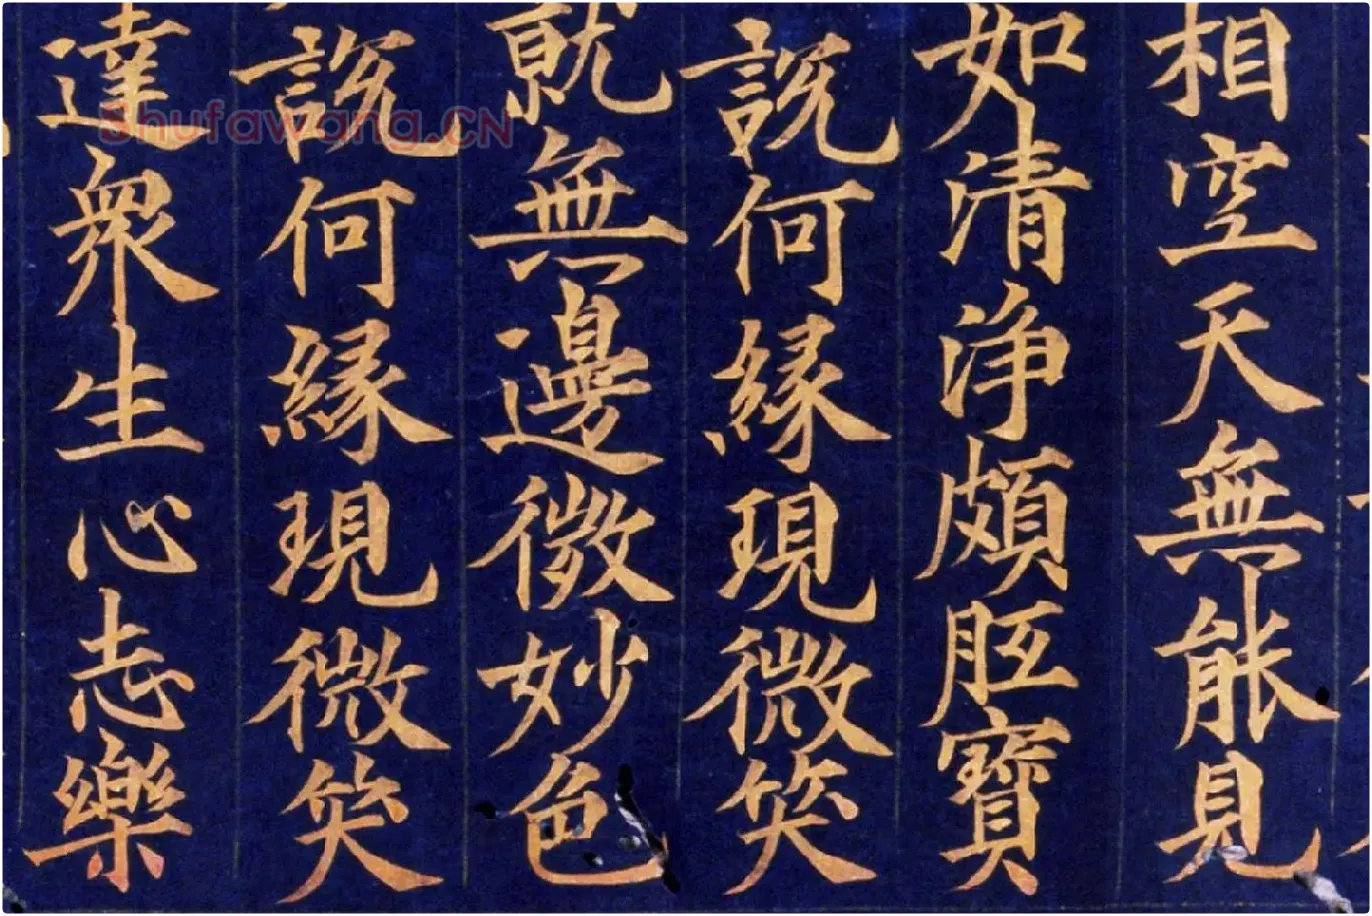 相空天無能見
如清淨頗胝寶
說何緣現微笑
就無邊微妙色
說何緣現微笑
達衆生心志樂
Shufawang.CN